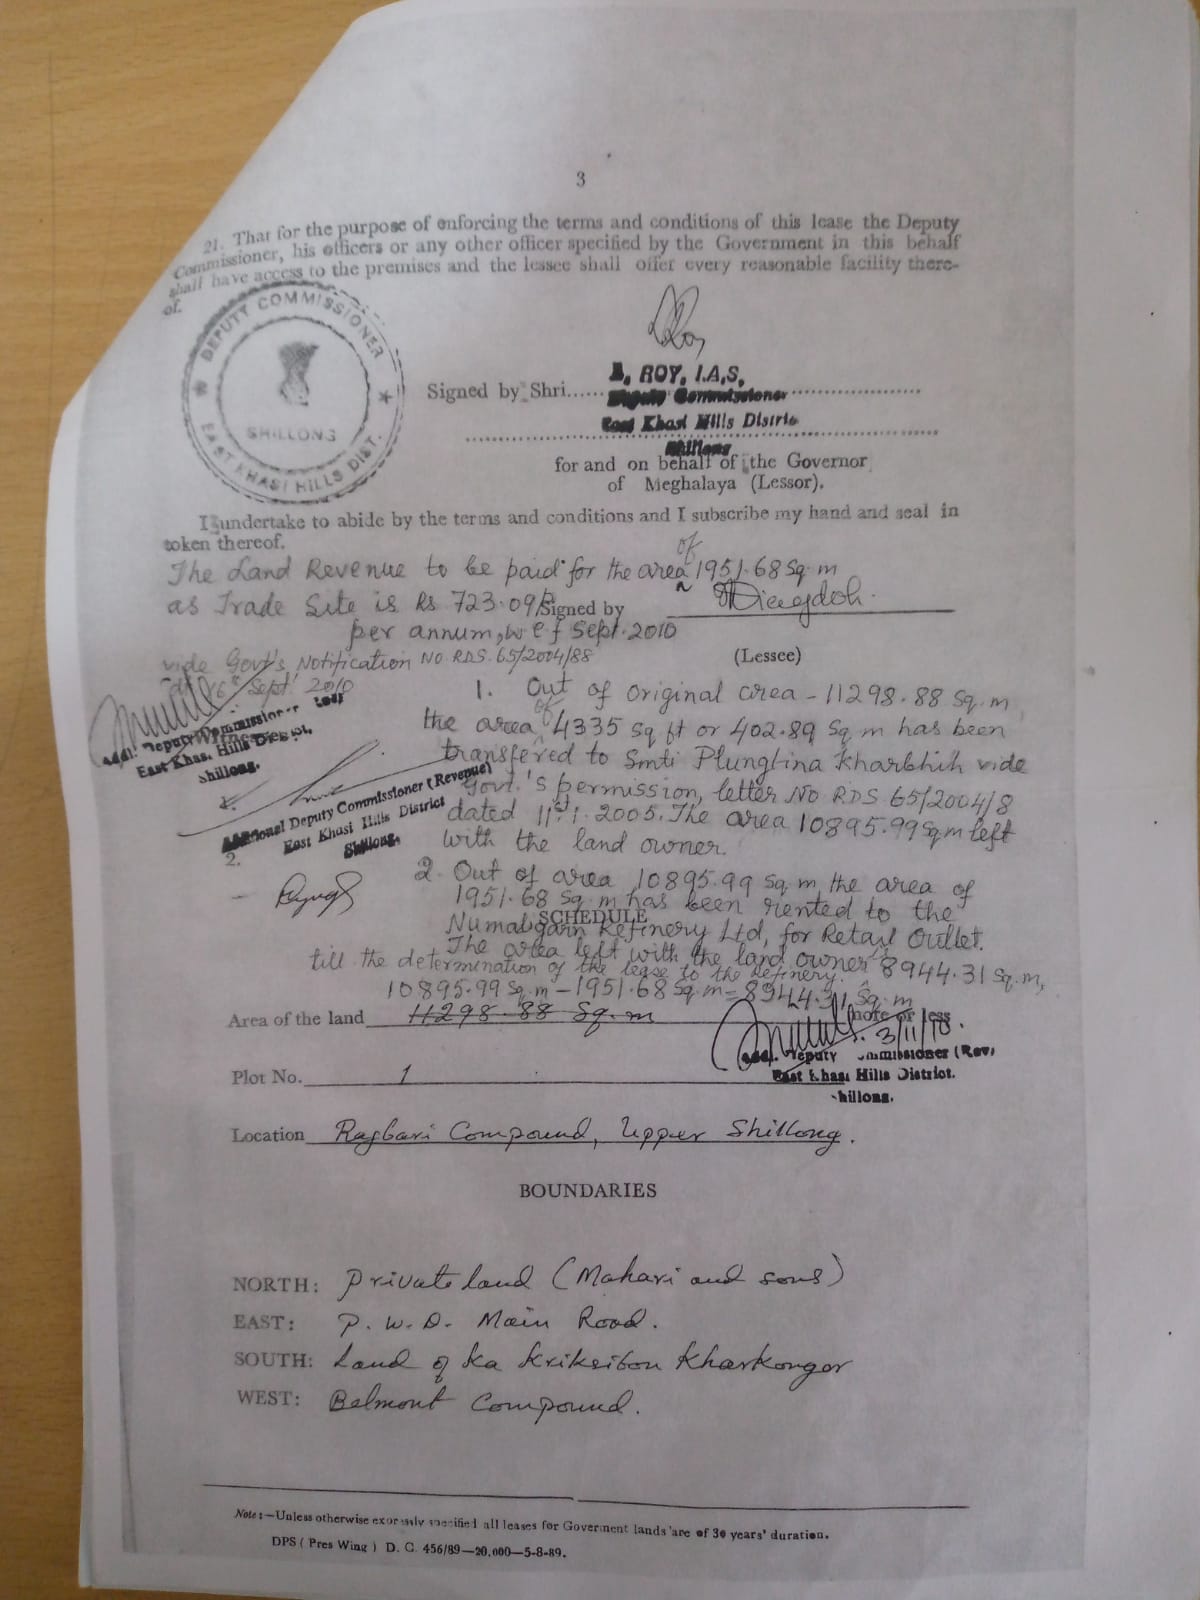 3
21. That for the purpose of enforcing the terms and conditions of this lease the Deputy
Commissioner, his officers or any other officer specified by the Government in this behalf
shall have access to the premises and the lessee shall offer every reasonable facility there-
of.
DEPUTY COMMISSIONER
SHILLONG
EAST KHASI HILLS DIST.
ROY, I.A.S,
Signed by Shri......
Deputy Commissioner
East Khasi Hills Distric
Shillong
for and on behalf of the Governor
of Meghalaya (Lessor).
I undertake to abide by the terms and conditions and I subscribe my hand and seal in
token thereof.
The Land Revenue to be paid for the area of 1951.68 Sq. m
as Trade Site is Rs 723.09/
Signed by
per annum, w e f Sept. 2010
vide Govt's Notification No RDS. 65/2004/88
Sept' 2010
(Lessee)
Addl. Deputy Commissioner
East Khasi Hills District,
Shillong.
Additional Deputy Commissioner (Revenue)
East Khasi Hills District
Shillong.
2.
1. Out of original area - 11298.88 Sq. m
the area of 4335 sq ft or 402.89 Sq. m has been
transfered to Smti Plungtina Kharbhih vide
Govt.'s permission, letter No RDS 65/2004/8
dated 11. 1. 2005. The area 10895.99 Sq m left
with the land owner.
2. Out of area 10895.99 Sq. m the area of
1951.68 Sq. m has been rented to the
SCHEDULE
Numaligarh Refinery Ltd, for Retail Outlet.
The area left with the land owner 8944.31 Sq. m,
till the determination of the lease to the Refinery.
10895.99 Sq. m - 1951.68 Sq. m = 8944.31 Sq. m
Area of the land 11298.88 Sq. m more or less
3/11/10.
Addl. Deputy Commissioner (Rev)
East Khasi Hills District.
Shillong.
Plot No. 1
Location Rajbari Compound, Upper Shillong.
BOUNDARIES
NORTH: Private land (Mahari and sons)
EAST: P. W. D. Main Road.
SOUTH: Land of Ka Kriksibon Kharkongor
WEST: Belmont Compound.
Note:—Unless otherwise expressly specified all leases for Goverment lands are of 30 years' duration.
DPS ( Pres Wing ) D. C. 456/89—20,000—5-8-89.